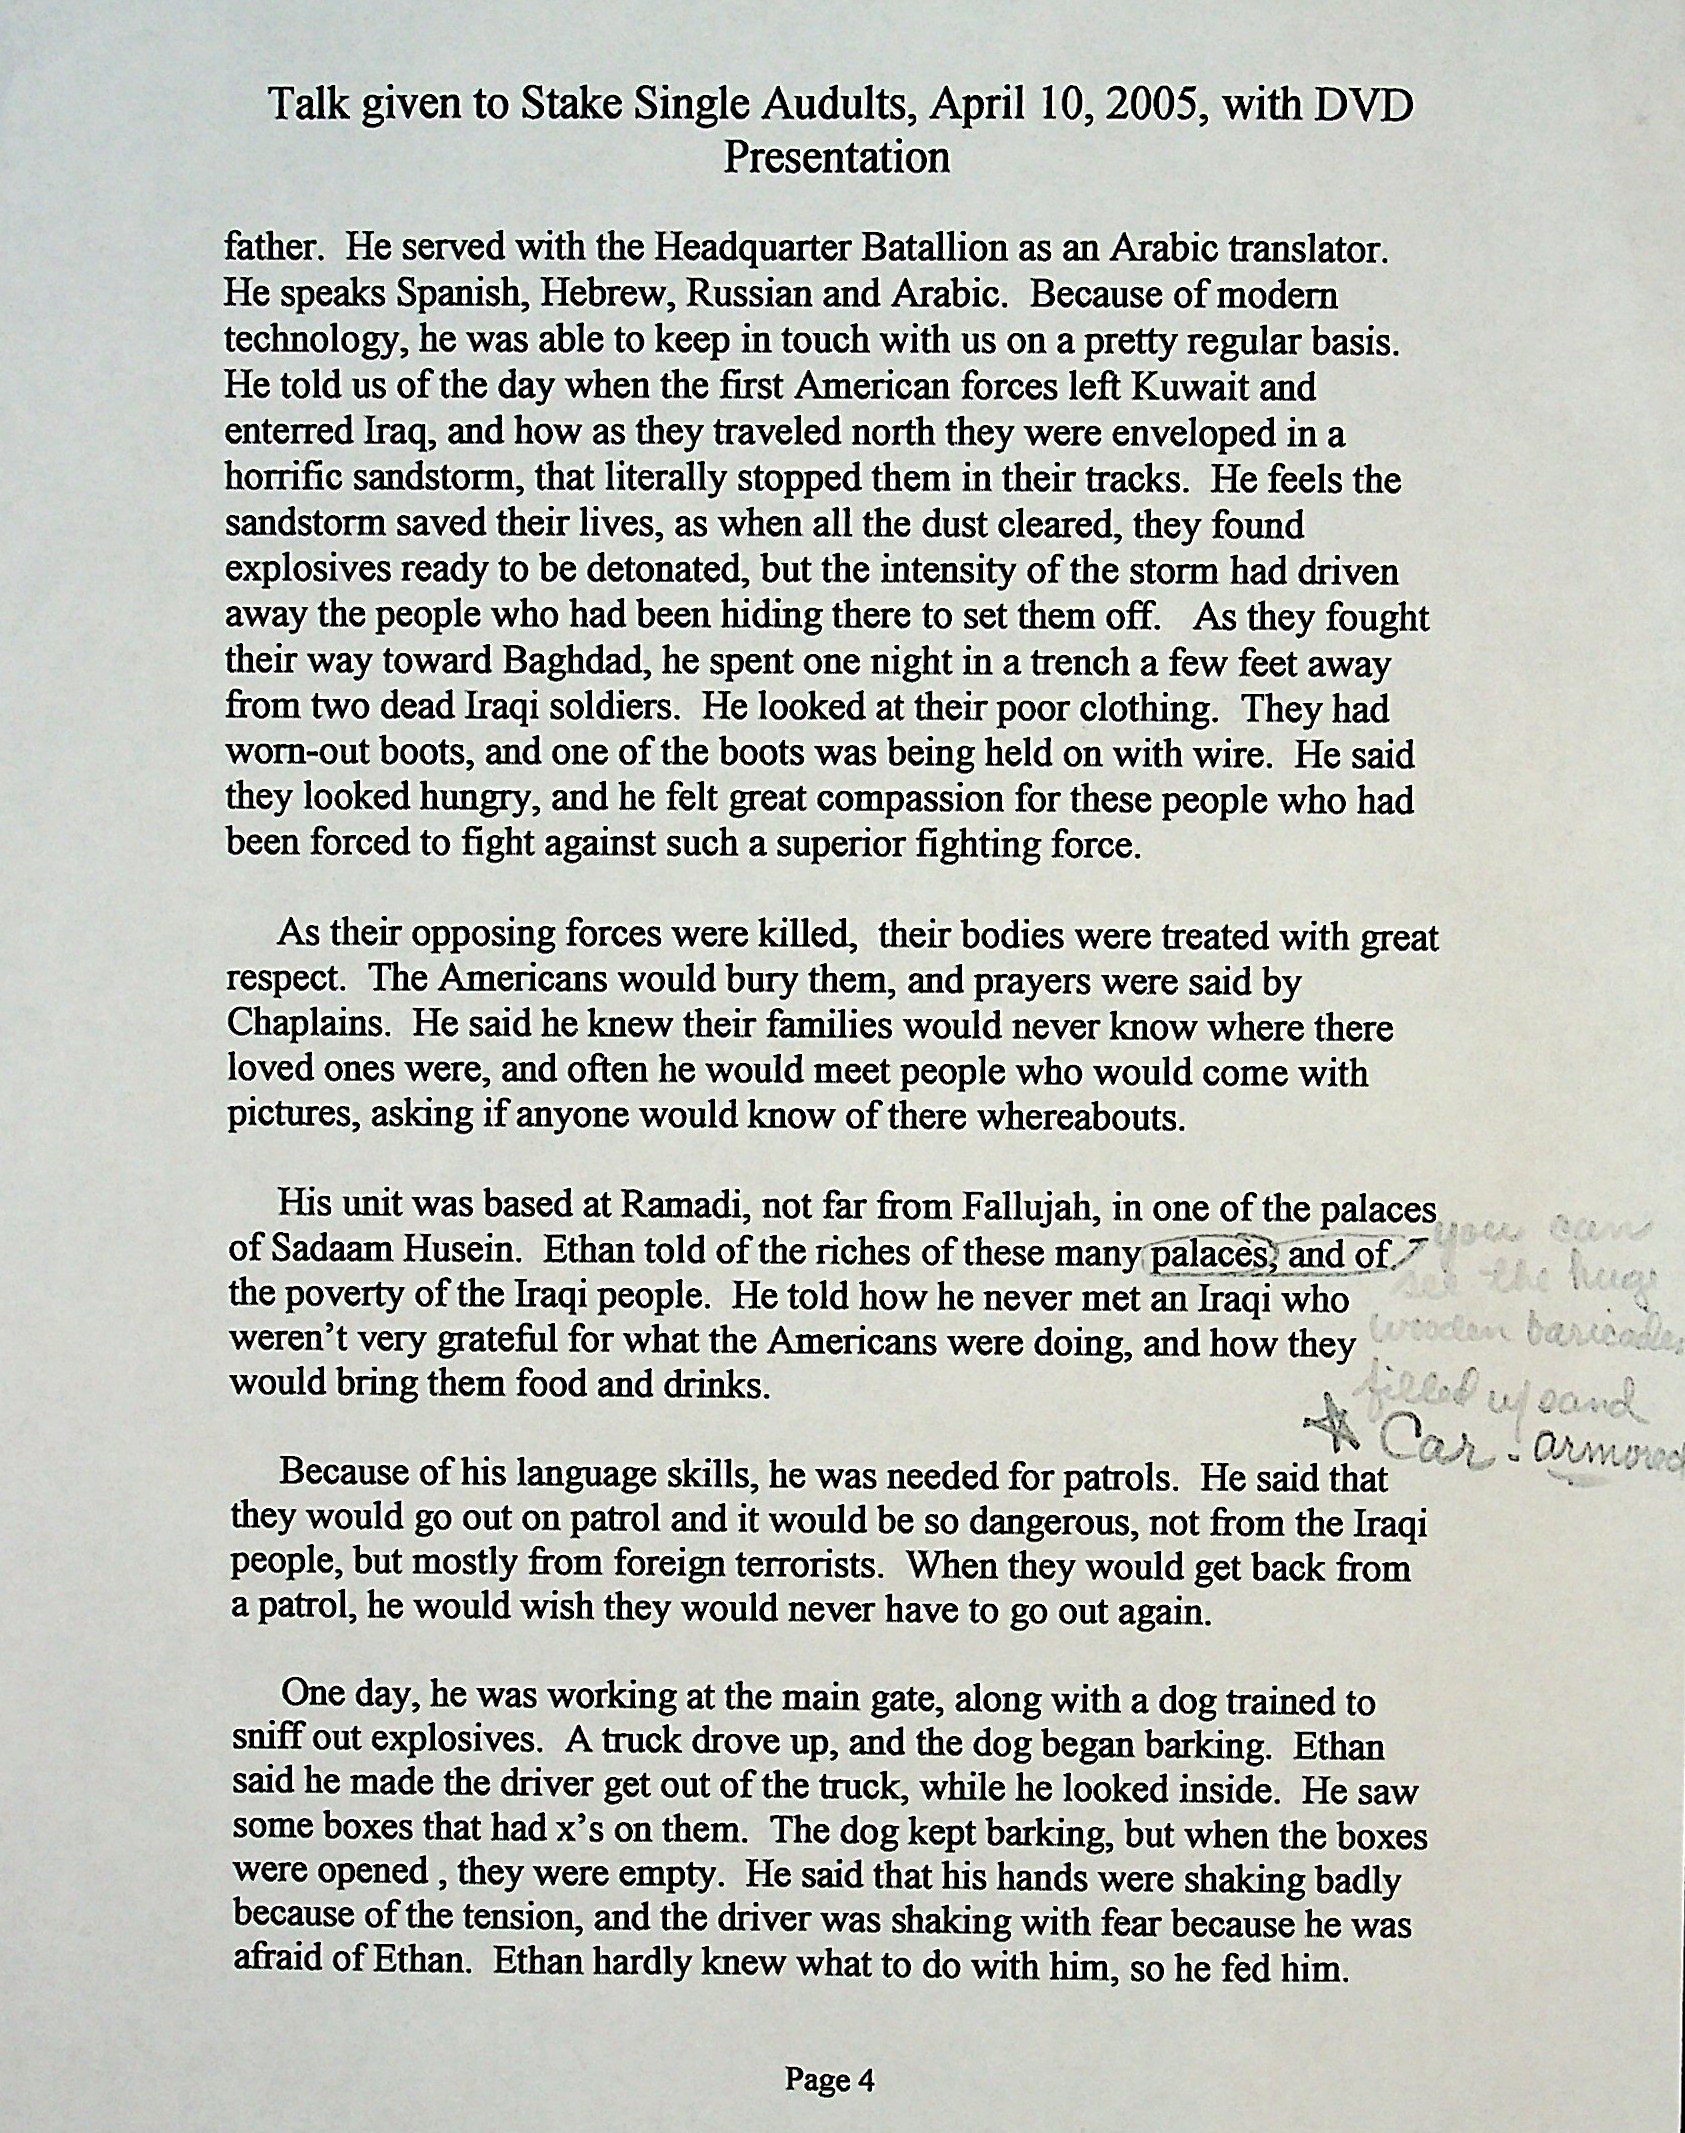 Talk given to Stake Single Audults, April 10, 2005, with DVD
Presentation
father.  He served with the Headquarter Batallion as an Arabic translator.
He speaks Spanish, Hebrew, Russian and Arabic.  Because of modern
technology, he was able to keep in touch with us on a pretty regular basis.
He told us of the day when the first American forces left Kuwait and
enterred Iraq, and how as they traveled north they were enveloped in a
horrific sandstorm, that literally stopped them in their tracks.  He feels the
sandstorm saved their lives, as when all the dust cleared, they found
explosives ready to be detonated, but the intensity of the storm had driven
away the people who had been hiding there to set them off.   As they fought
their way toward Baghdad, he spent one night in a trench a few feet away
from two dead Iraqi soldiers.  He looked at their poor clothing.  They had
worn-out boots, and one of the boots was being held on with wire.  He said
they looked hungry, and he felt great compassion for these people who had
been forced to fight against such a superior fighting force.
As their opposing forces were killed,  their bodies were treated with great
respect.  The Americans would bury them, and prayers were said by
Chaplains.  He said he knew their families would never know where there
loved ones were, and often he would meet people who would come with
pictures, asking if anyone would know of there whereabouts.
His unit was based at Ramadi, not far from Fallujah, in one of the palaces
of Sadaam Husein.  Ethan told of the riches of these many palaces, and of
the poverty of the Iraqi people.  He told how he never met an Iraqi who
weren't very grateful for what the Americans were doing, and how they
would bring them food and drinks.
you can
see the huge
wooden baricades
filled w/ sand
Car - armored
Because of his language skills, he was needed for patrols.  He said that
they would go out on patrol and it would be so dangerous, not from the Iraqi
people, but mostly from foreign terrorists.  When they would get back from
a patrol, he would wish they would never have to go out again.
One day, he was working at the main gate, along with a dog trained to
sniff out explosives.  A truck drove up, and the dog began barking.  Ethan
said he made the driver get out of the truck, while he looked inside.  He saw
some boxes that had x's on them.  The dog kept barking, but when the boxes
were opened , they were empty.  He said that his hands were shaking badly
because of the tension, and the driver was shaking with fear because he was
afraid of Ethan.  Ethan hardly knew what to do with him, so he fed him.
Page 4